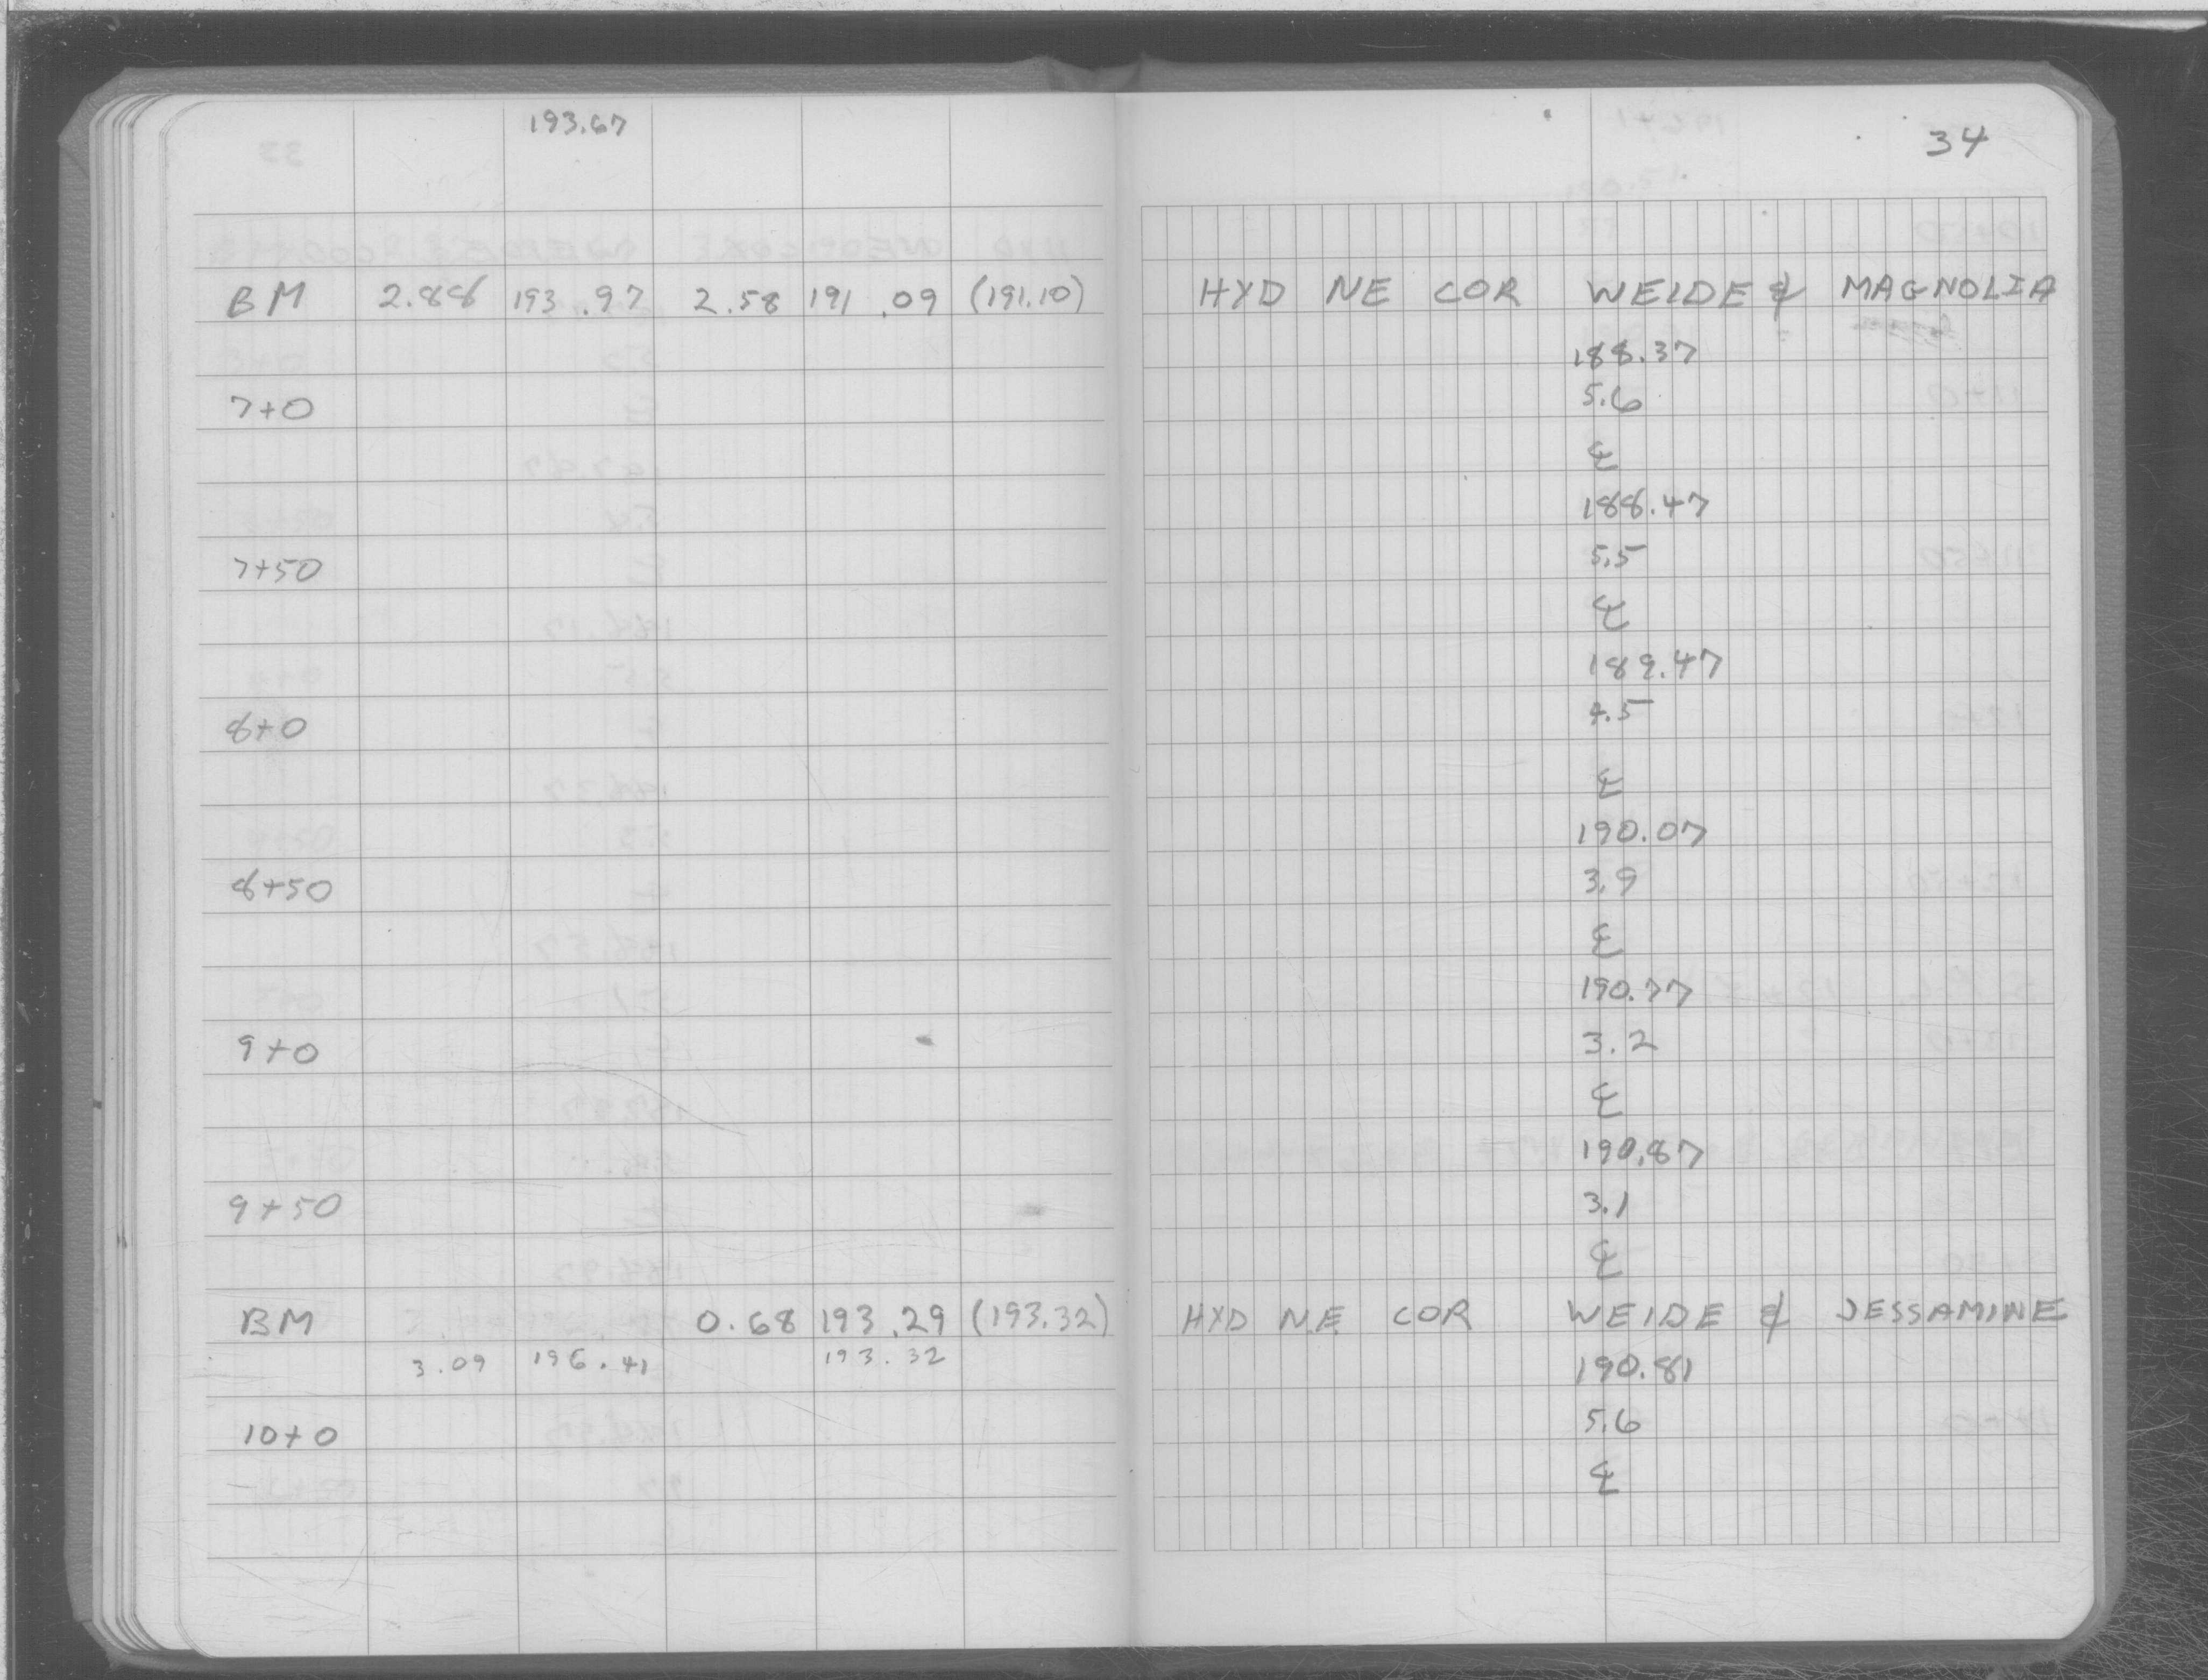 193.67
34
BM 2.88 193.97 2.58 191.09 (191.10) HYD NE COR WEIDE & MAGNOLIA
188.37
7+0 5.6
℄
188.47
7+50 5.5
℄
189.47
8+0 4.5
℄
190.07
8+50 3.9
℄
190.77
9+0 3.2
℄
190.87
9+50 3.1
℄
BM 0.68 193.29 (193.32) HYD N.E. COR WEIDE & JESSAMINE
3.09 196.41 193.32 190.81
10+0 5.6
℄